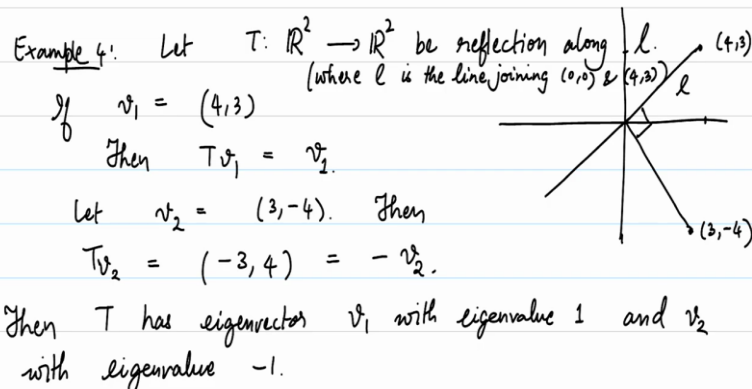 Example 4: Let T: ℝ² → ℝ² be reflection along l.
(where l is the line joining (0,0) & (4,3))
If v₁ = (4,3)
Then Tv₁ = v₁.
Let v₂ = (3,-4). Then
Tv₂ = (-3,4) = -v₂.
Then T has eigenvector v₁ with eigenvalue 1 and v₂
with eigenvalue -1.
(4,3)
l
(3,-4)